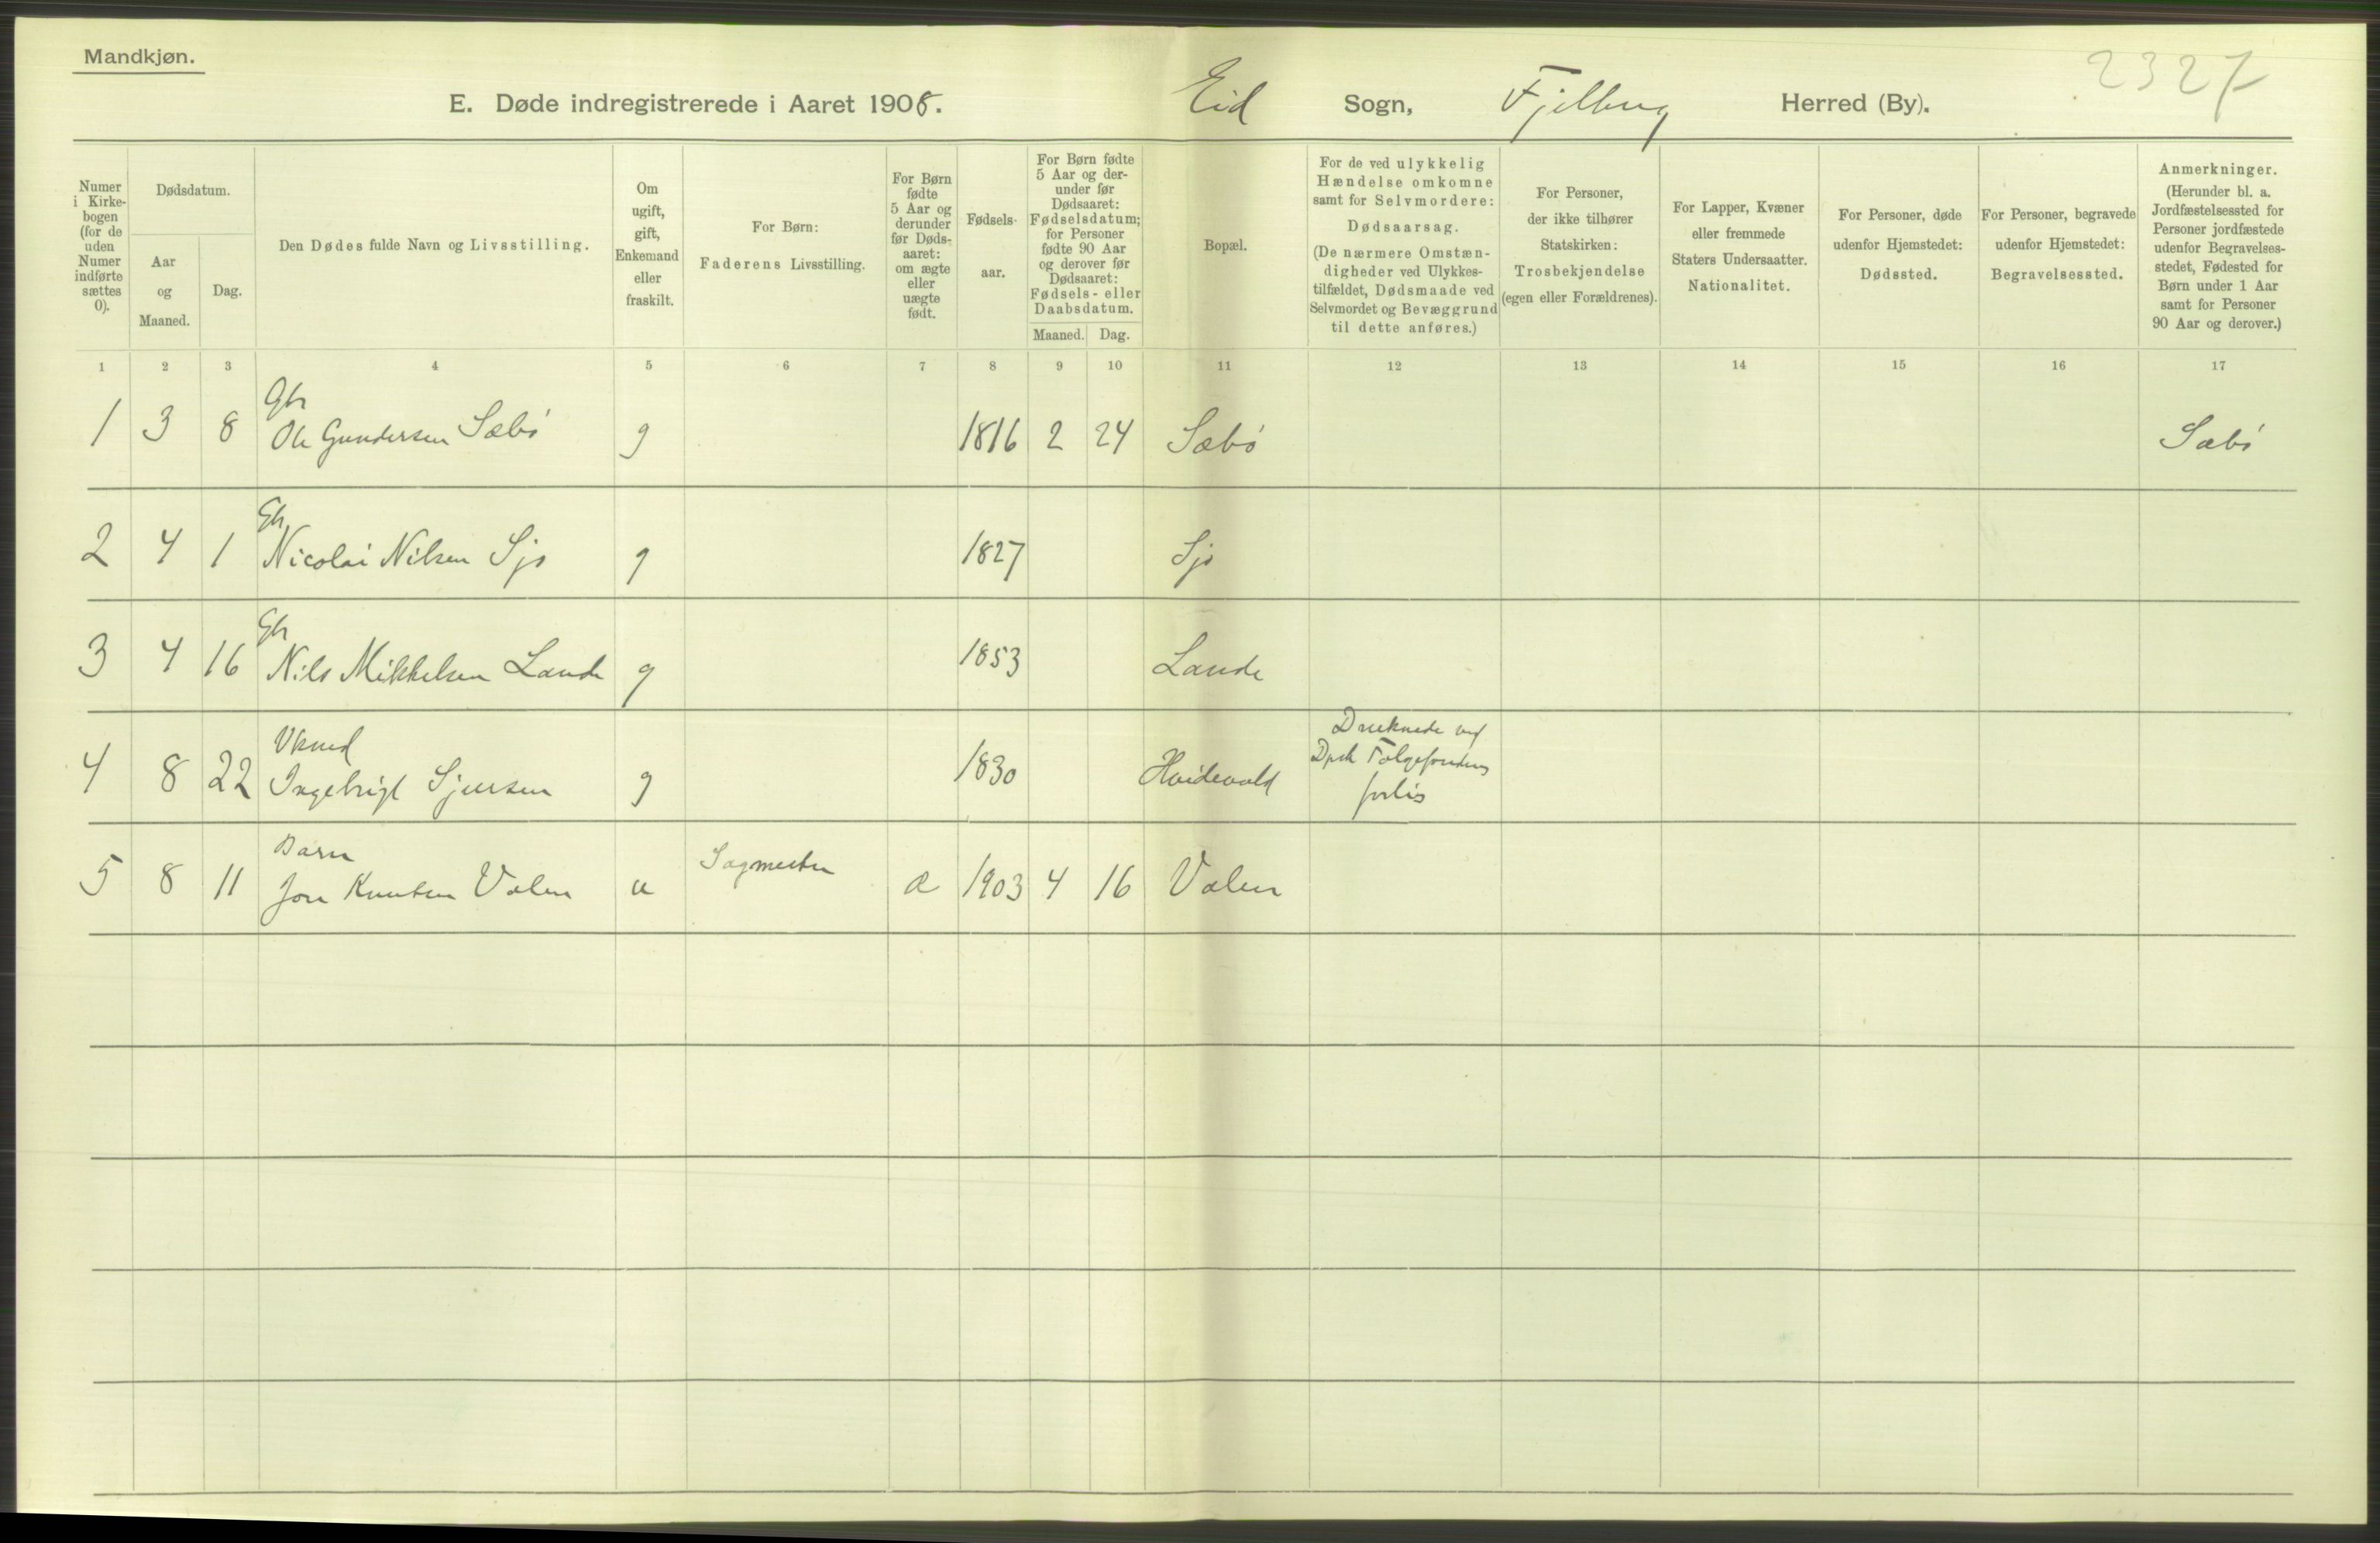 Mandkjøn.
2327
E. Døde indregistrerede i Aaret 1908. Eid Sogn, Fjelberg Herred (By).
Numer i Kirke-bogen (for de uden Numer indførte sættes 0).
Dødsdatum.
Aar og Maaned.
Dag.
Den Dødes fulde Navn og Livsstilling.
Om ugift, gift, Enkemand eller fraskilt.
For Børn: Faderens Livsstilling.
For Børn fødte 5 Aar og derunder før Døds-aaret: om ægte eller uægte født.
Fødsels-aar.
For Børn fødte 5 Aar og der-under før Dødsaaret: Fødselsdatum; for Personer fødte 90 Aar og derover før Dødsaaret: Fødsels- eller Daabsdatum.
Maaned. Dag.
Bopæl.
For de ved ulykkelig Hændelse omkomne samt for Selvmordere: Dødsaarsag. (De nærmere Omstæn-digheder ved Ulykkes-tilfældet, Dødsmaade ved Selvmordet og Bevæggrund til dette anføres.)
For Personer, der ikke tilhører Statskirken: Trosbekjendelse (egen eller Forældrenes).
For Lapper, Kvæner eller fremmede Staters Undersaatter. Nationalitet.
For Personer, døde udenfor Hjemstedet: Dødssted.
For Personer, begravede udenfor Hjemstedet: Begravelsessted.
Anmerkninger. (Herunder bl. a. Jordfæstelsessted for Personer jordfæstede udenfor Begravelses-stedet, Fødested for Børn under 1 Aar samt for Personer 90 Aar og derover.)
1 2 3 4 5 6 7 8 9 10 11 12 13 14 15 16 17
Gbr
1 3 8 Ole Gundersen Sæbø g 1816 2 24 Sæbø Sæbø
Gbr
2 4 1 Nicolai Nilsen Sjo g 1827 Sjo
Gbr
3 4 16 Nils Mikkelsen Lande g 1853 Lande
Druknede ved
Dpsk Folgefondens
forlis
4 8 22 Ingebrigt Sjursen g 1830 Hvidevold
Barn
5 8 11 Jon Knutsen Valen u Sagmester æ 1903 4 16 Valen